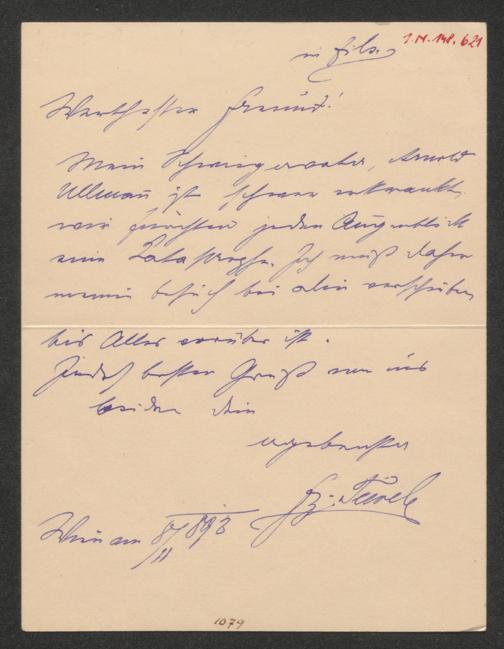 I.N. 148.621
in Eile.
Werthester Freund!
Mein Schwiegervater, Arnold
Ullmann ist schwer erkrankt,
wir fürchten jeden Augenblick
eine Katastrophe. Ich muß daher
meinen Besuch bei Dir verschieben
bis Alles vorüber ist.
Indeß besten Gruß von uns
beiden Dein
ergebenster
Wien am 8/11 893
1079